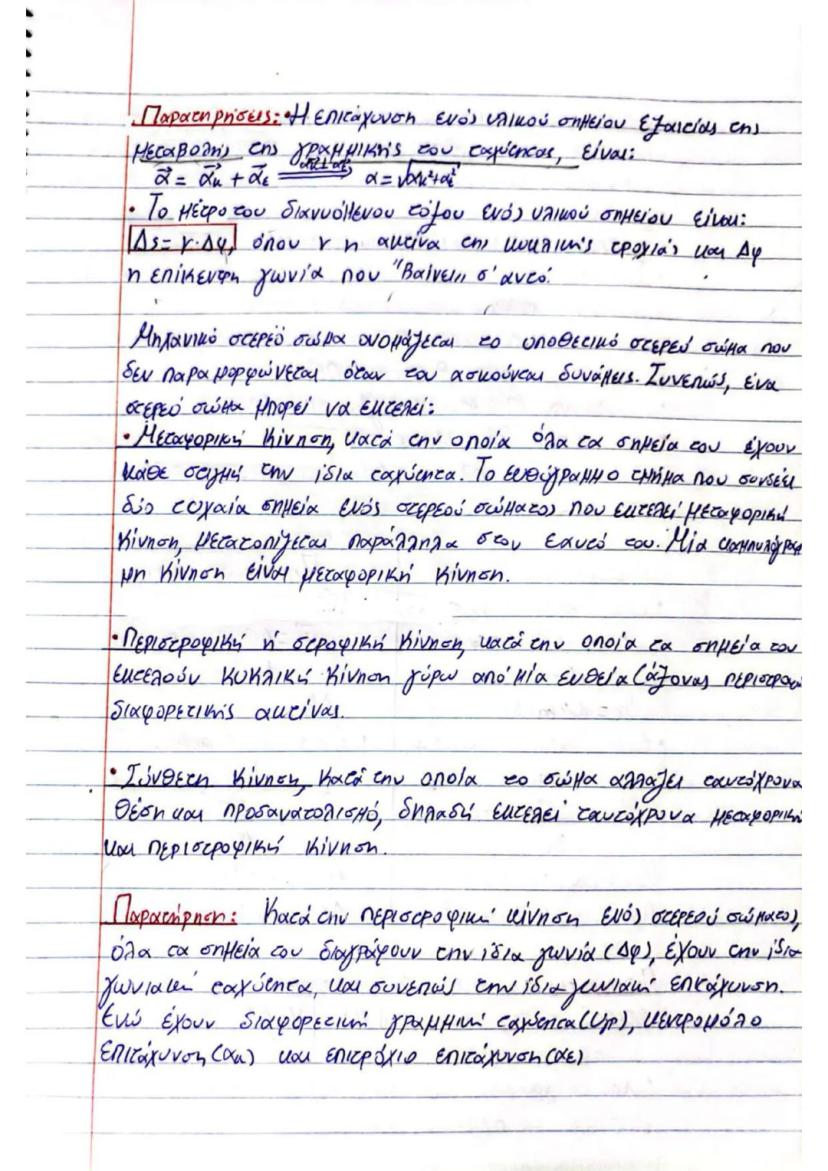 Παρατηρήσεις: • Η επιτάχυνση ενός υλικού σημείου εξαιτίας της
μεταβολής της γραμμικής του ταχύτητας, είναι:
α⃗ = α⃗κ + α⃗ε ⟹ α = √ακ²+αε²
• Το μέτρο του διανυόμενου τόξου ενός υλικού σημείου είναι:
Δs = r·Δφ, όπου r η ακτίνα της κυκλικής τροχιάς και Δφ
η επίκεντρη γωνία που "βαίνει" σ' αυτό.
Μηχανικό στερεό σώμα ονομάζεται το υποθετικό στερεό σώμα που
δεν παραμορφώνεται όταν του ασκούνται δυνάμεις. Συνεπώς, ένα
στερεό σώμα μπορεί να εκτελεί:
• Μεταφορική Κίνηση, κατά την οποία όλα τα σημεία του έχουν
κάθε στιγμή την ίδια ταχύτητα. Το ευθύγραμμο τμήμα που συνδέει
δύο τυχαία σημεία ενός στερεού σώματος που εκτελεί μεταφορική
κίνηση, μετατοπίζεται παράλληλα στον εαυτό του. Μία καμπυλόγραμ
μη κίνηση είναι μεταφορική κίνηση.
• Περιστροφική ή στροφική Κίνηση, κατά την οποία τα σημεία του
εκτελούν κυκλική κίνηση γύρω από μία ευθεία (άξονας περιστροφ
διαφορετικής ακτίνας.
• Σύνθετη Κίνηση, κατά την οποία το σώμα αλλάζει ταυτόχρονα
θέση και προσανατολισμό, δηλαδή εκτελεί ταυτόχρονα μεταφορική
και περιστροφική κίνηση.
Παρατήρηση: Κατά την περιστροφική κίνηση ενός στερεού σώματος,
όλα τα σημεία του διαγράφουν την ίδια γωνία (Δφ), έχουν την ίδια
γωνιακή ταχύτητα, και συνεπώς την ίδια γωνιακή επιτάχυνση.
Ενώ έχουν διαφορετική γραμμική ταχύτητα (υγρ), κεντρομόλο
επιτάχυνση (ακ) και επιτρόχιο επιτάχυνση (αε)